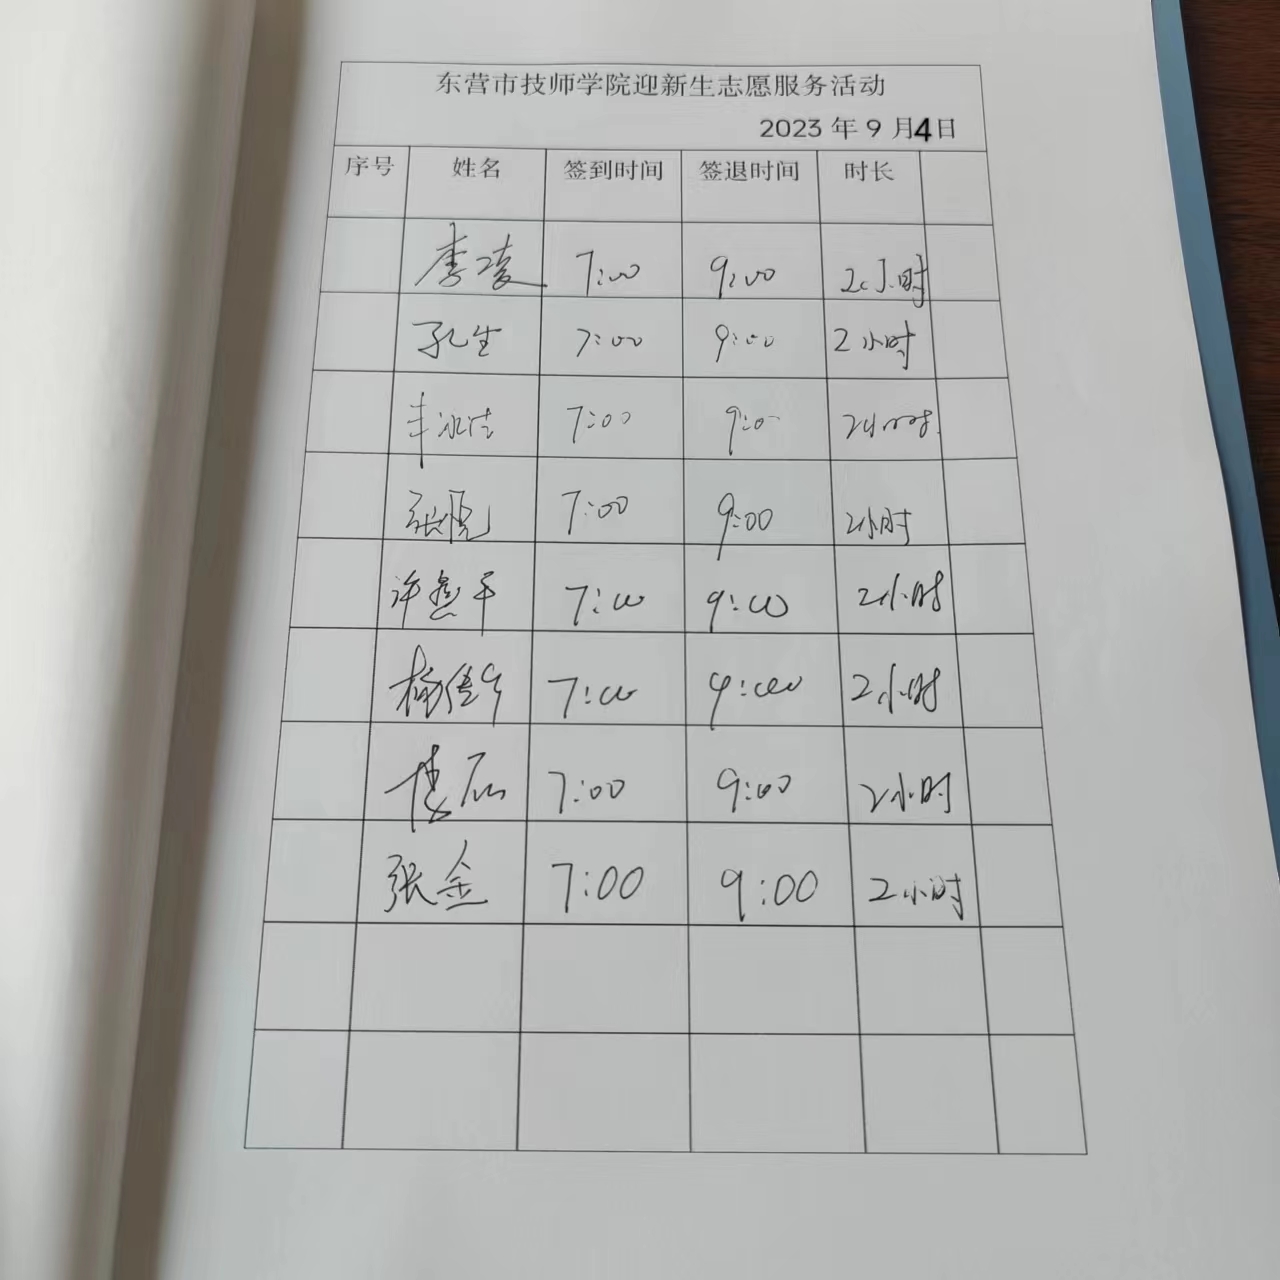 东营市技师学院迎新生志愿服务活动
2023 年 9 月4日
序号 姓名 签到时间 签退时间 时长
李凌 7:00 9:00 2小时
孔生 7:00 9:00 2小时
丰冰洁 7:00 9:00 2小时
张悦 7:00 9:00 2小时
许燕平 7:00 9:00 2小时
杨佳宁 7:00 9:00 2小时
7:00 9:00 2小时
张金 7:00 9:00 2小时